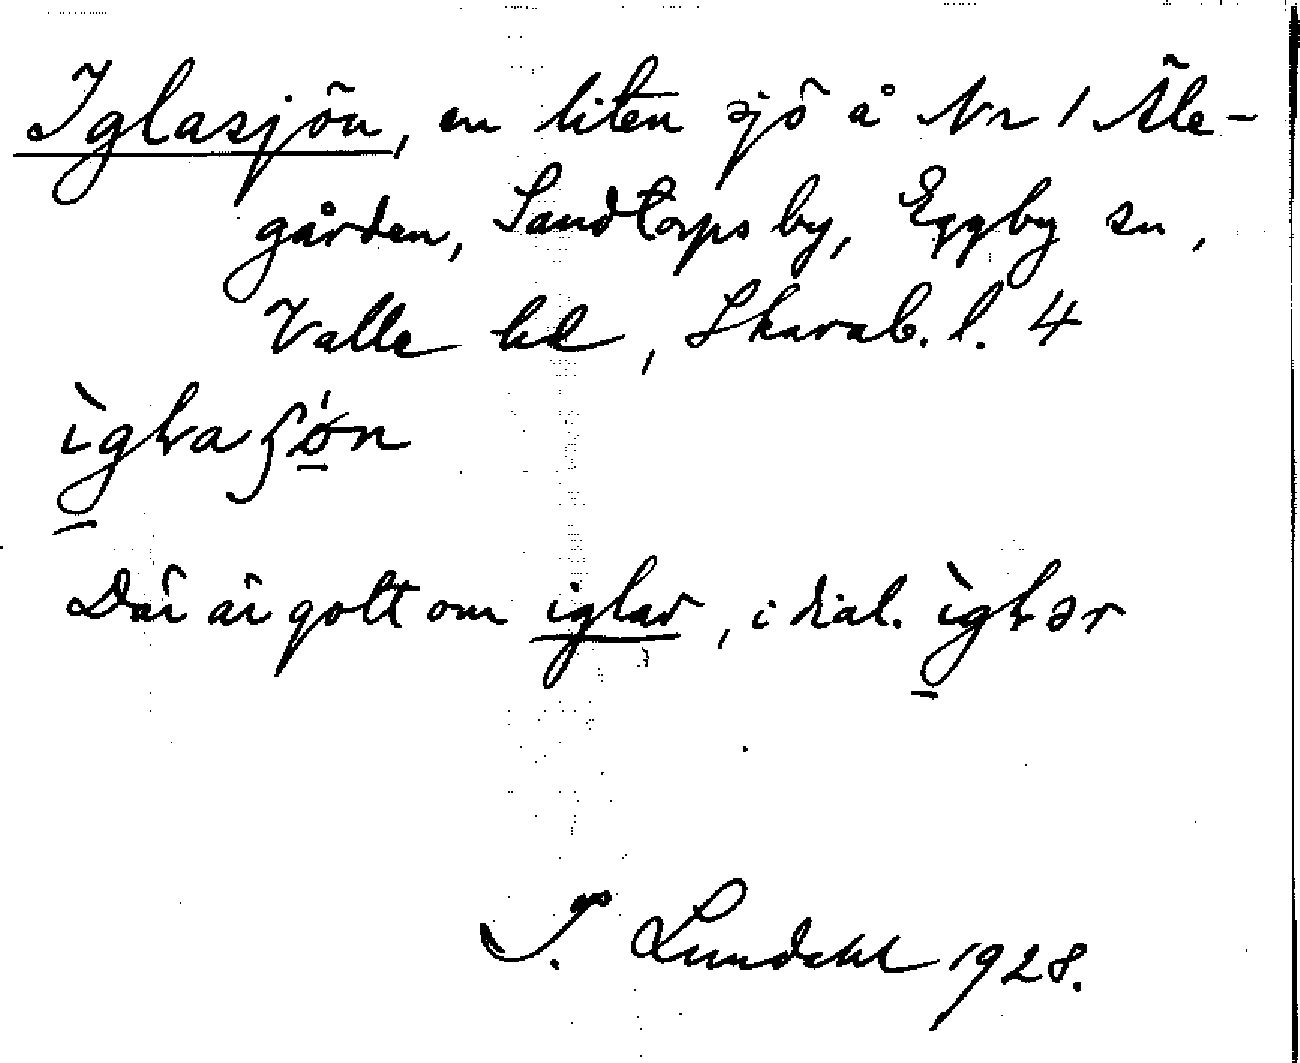 Iglasjön, en liten sjö å Nr 1 Åle-
gården, Sandtorps by, Eggby sn,
Valle hd, Skarab. l. 4
Där är gott om iglar, i dial.
Lundahl 1928.